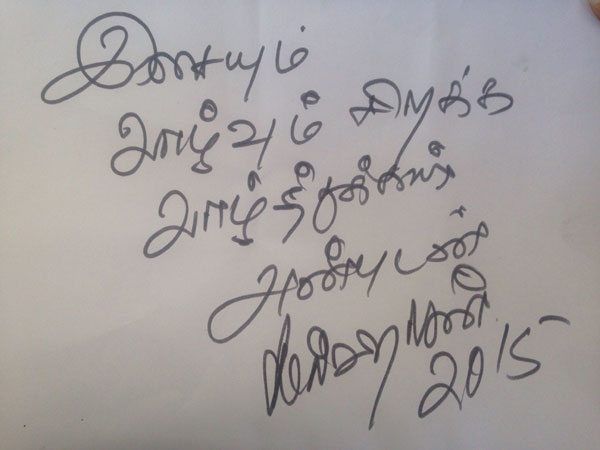 இசையும்
வாழ்வும் சிறக்க
வாழ்த்துக்கள்
அன்புடன்
2015